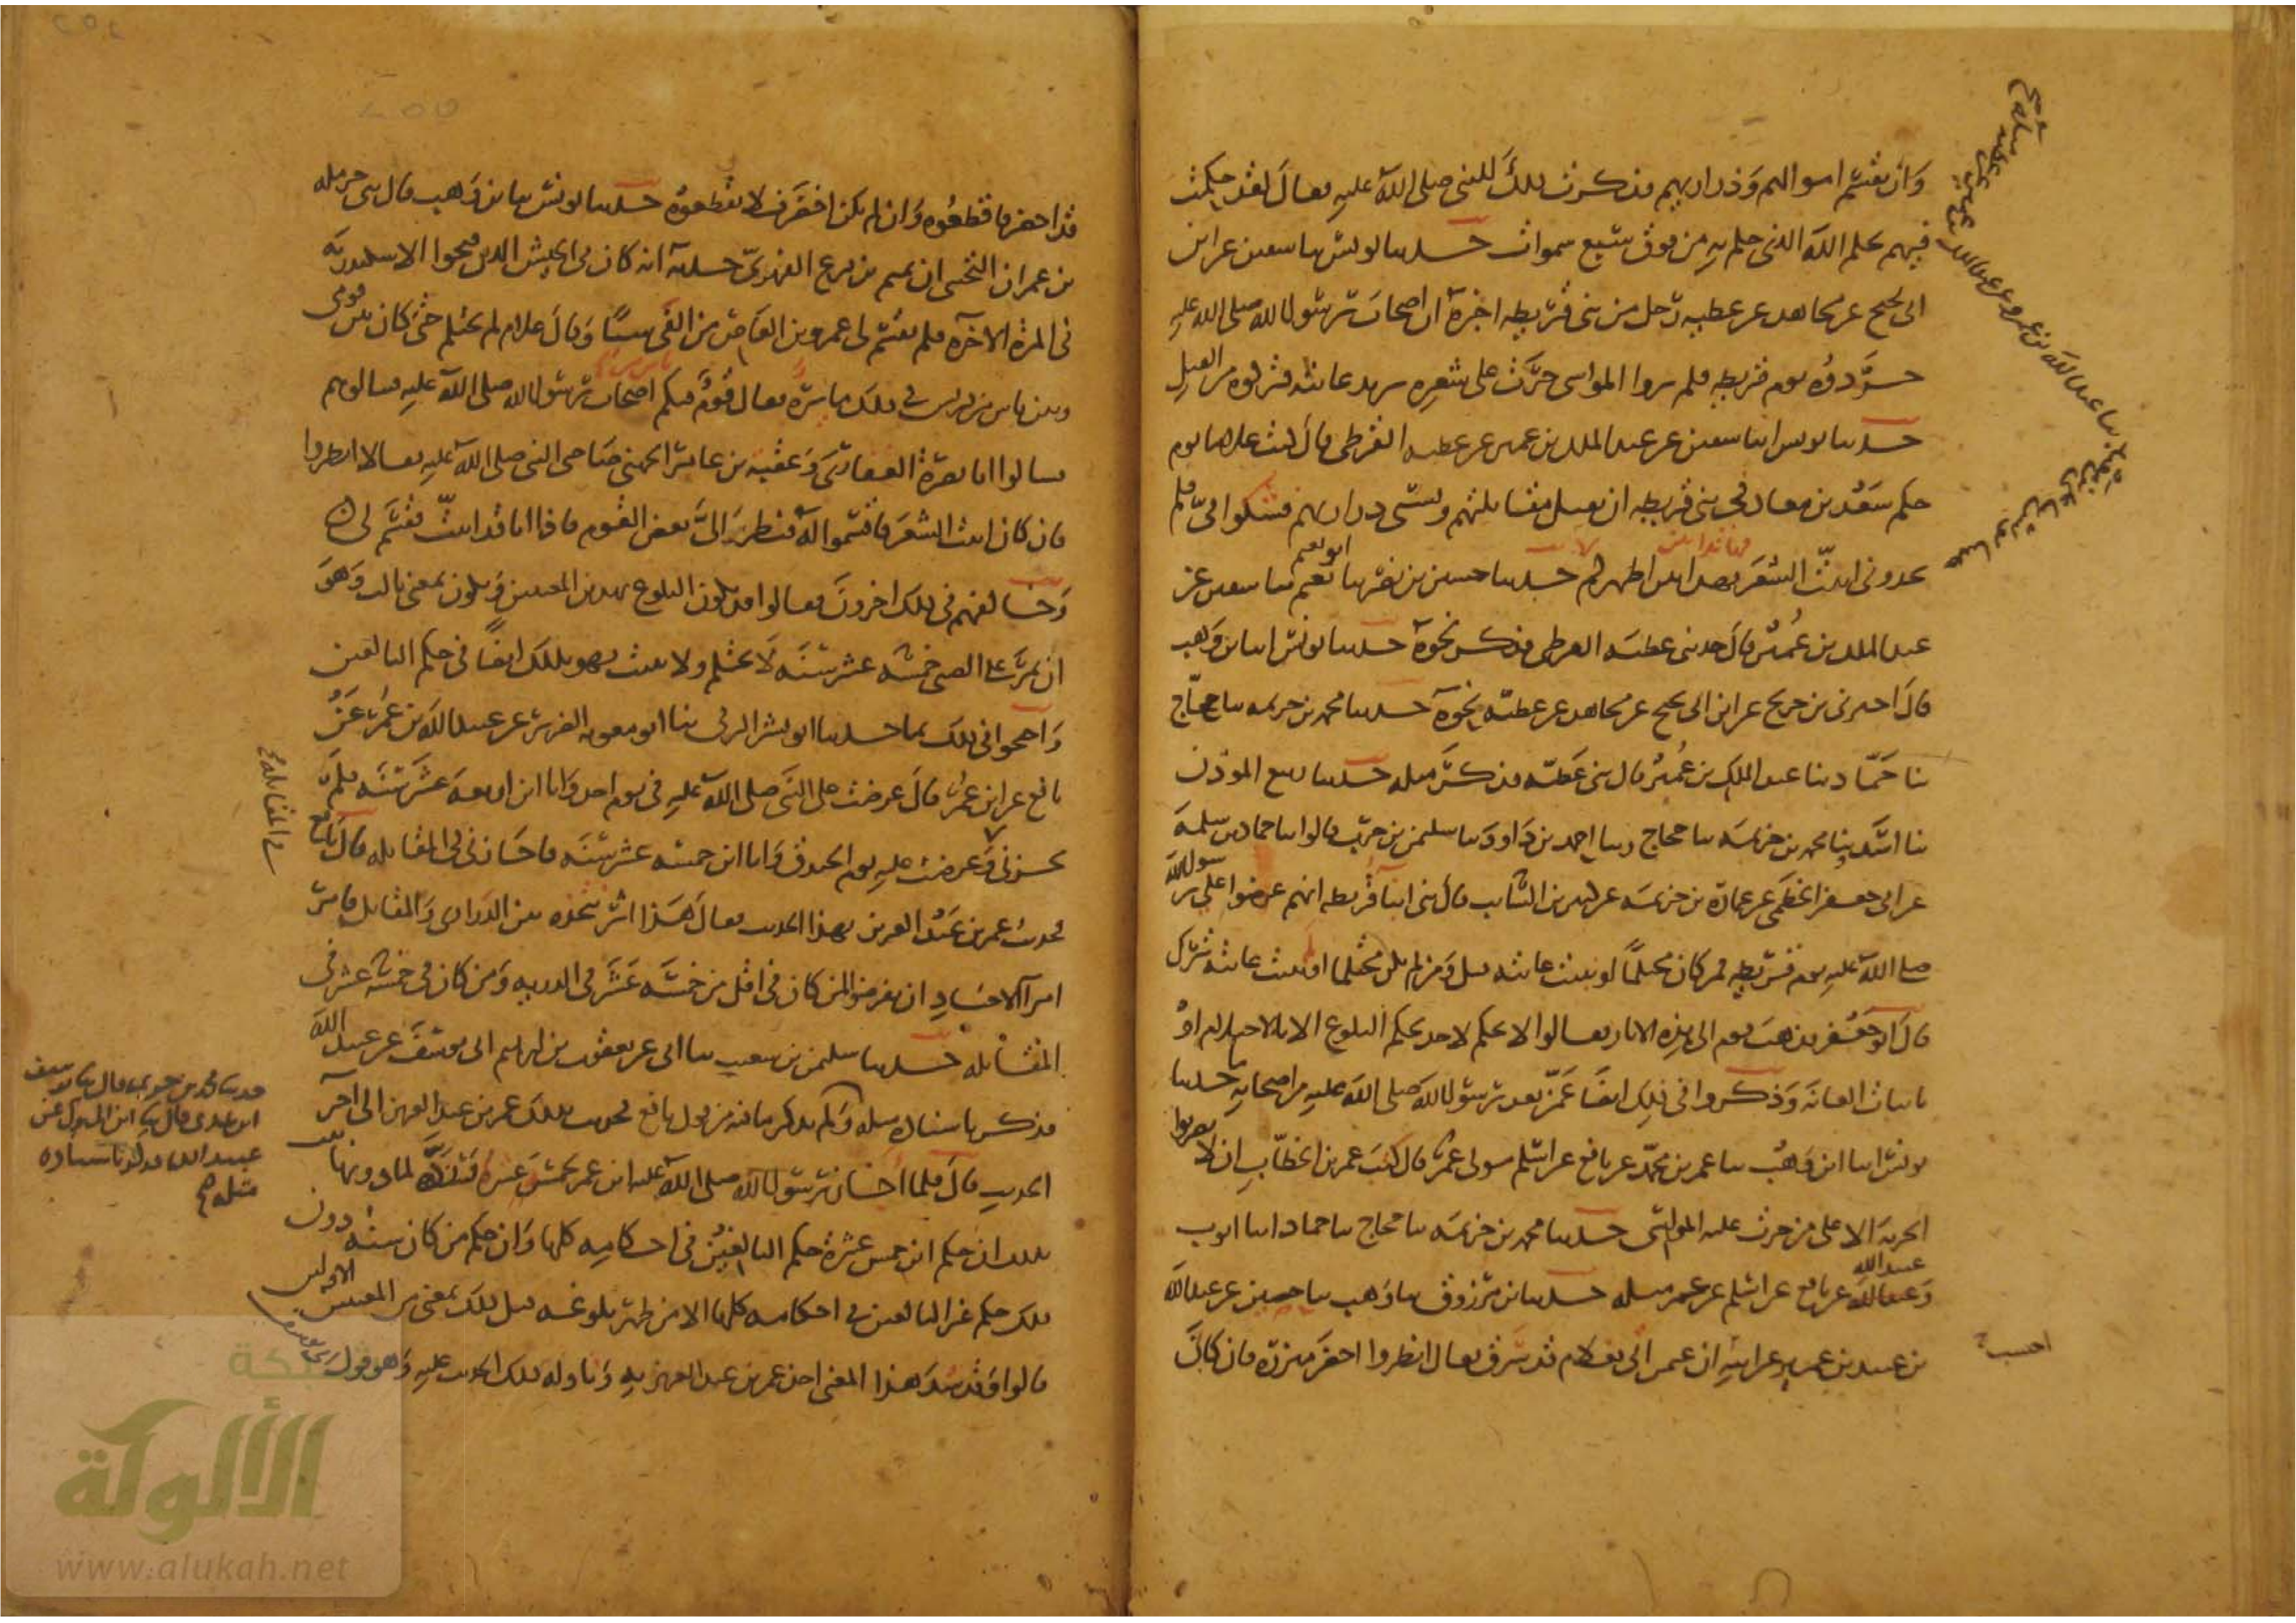 وان نقسم اموالهم وذراريهم فذكرت ذلك للنبي صلى الله عليه فقال لقد حكمت
فيهم بحكم الله الذي حكم به من فوق سبع سموات حدثنا يونس ثنا سفين عن ابن
ابي نجيح عن مجاهد عن عطية رجل من بني قريظة اخبره ان اصحاب رسول الله صلى الله عليه
جردوه يوم قريظة فلم يروا المواسي جرت على شعره يريد عانته فتركوه من القتل
حدثنا يونس انبا سفين عن عبد الملك بن عمير عن عطية القرظي قال كنت غلاما يوم
حكم سعد بن معاذ في بني قريظة ان يقتل مقاتلتهم وتسبى ذراريهم فشكوا في فلم
يجدوني انبت الشعر فها انا بين اظهركم حدثنا حسين بن نصر ثنا ابو نعيم ثنا سفين عن
عبد الملك بن عمير قال حدثني عطية القرظي فذكر نحوه حدثنا يونس انبا ابن وهب
قال اخبرني بن جريج عن ابن ابي نجيح عن مجاهد عن عطية بنحوه حدثنا محمد بن خزيمة ثنا حجاج
ثنا حماد ثنا عبد الملك بن عمير قال ثني عطية فذكر مثله حدثنا ربيع الموذن
ثنا اسد وثنا محمد بن خزيمة ثنا حجاج وثنا احمد بن داود ثنا سليمن بن حرب قالوا ثنا حماد بن سلمة
عن ابي جعفر الخطمي عن عمارة بن خزيمة عن كثير بن السائب قال ثني ابنا قريظة انهم عرضوا على رسول الله
صلى الله عليه يوم قريظة فمن كان محتلما او نبتت عانته قتل ومن لم يكن محتلما او نبتت عانته ترك
قال ابو جعفر فذهب قوم الى هذه الاثار فقالوا لا يحكم لاحد بحكم البلوغ الا بالاحتلام او
بانبات العانة وذكروا في ذلك ايضا عمن بعد رسول الله صلى الله عليه من اصحابه ما حدثنا
يونس انبا ابن وهب ثنا عمر بن محمد عن نافع عن اسلم مولى عمر قال كتب عمر بن الخطاب ان لا تضربوا
الجزية الا على من جرت عليه المواسي حدثنا محمد بن خزيمة ثنا حجاج ثنا حماد انبا ايوب
وعبيد الله عن نافع عن اسلم عن عمر مثله حدثنا ابن مرزوق ثنا وهب ثنا عن عبد الله
بن عبيد بن عمير عن ابيه ان عمر اتي بغلام قد سرق فقال انظروا اخضر مئزره فان كان
قد اخضر فاقطعوه وان لم يكن اخضر فلا تقطعوه حدثنا يونس ثنا بن وهب قال ثني حرملة
بن عمران التجيبي ان تميم بن فرع الفهري حدثه انه كان في الجيش الذين فتحوا الاسكندرية
في المرة الاخرة فلم يقسم لي عمرو بن العاص من الفي شيئا وقال غلام لم يحتلم حتى كان بين قومي
وبين ناس من قريش في ذلك ثائرة فقال قوم فيكم اصحاب رسول الله صلى الله عليه فسالوهم
فسالوا ابا بصرة الغفاري وعقبة بن عامر الجهني صاحبي النبي صلى الله عليه فقالا انظروا
فان كان انبت الشعر فاقسموا له فنظر الي بعض القوم فاذا انا قد انبت فقسم لي
وخالفهم في ذلك اخرون فقالوا قد يكون البلوغ بهذين المعنيين ويكون بمعنى ثالث وهو
ان يمر على الصبي خمسة عشر سنة لا يحتلم ولا ينبت فهو بذلك ايضا في حكم البالغين
واحتجوا في ذلك بما حدثنا ابو بشر الرقي ثنا ابو معوية الضرير عن عبيد الله بن عمر عن
نافع عن ابن عمر قال عرضت على النبي صلى الله عليه في يوم احد وانا ابن اربعة عشر سنة فلم
يجزني وعرضت عليه يوم الخندق وانا ابن خمسة عشر سنة فاجازني في المقاتلة قال نافع
فحدثت عمر بن عبد العزيز بهذا الحديث فقال هذا اثر نحده بين الذراري والمقاتلة فامر
امرا الاجناد ان يفرضوا لمن كان في اقل من خمسة عشر في الذرية ومن كان في خمسة عشر في
المقاتلة حدثنا سليمن بن شعيب ثنا ابي عن يعقوب بن ابرهيم ابي يوسف عن عبيد الله
فذكر باسناده مثله ولم يذكر ما فيه من قول نافع فحدثت بذلك عمر بن عبد العزيز الى اخر
الحديث قال فلما اجاز رسول الله صلى الله عليه ابن عمر لخمس عشرة ورده لما دونها
ثبت ان حكم ابن خمس عشرة حكم البالغين في احكامه كلها وان حكم من كان سنه دون
ذلك حكم غير البالغين في احكامه كلها الا من ظهر بلوغه قبل ذلك بمعنى من المعنيين الاولين
قالوا وقد شد هذا المعنى اخذ عمر بن عبد العزيز به وتاوله ذلك الحديث عليه وهو قول
في المقاتلة
حدثنا محمد بن خزيمة قال ثنا يوسف
ابن عدي قال ثنا ابن المبارك عن
عبيد الله فذكر باسناده
مثله صح
الألوكة
www.alukah.net